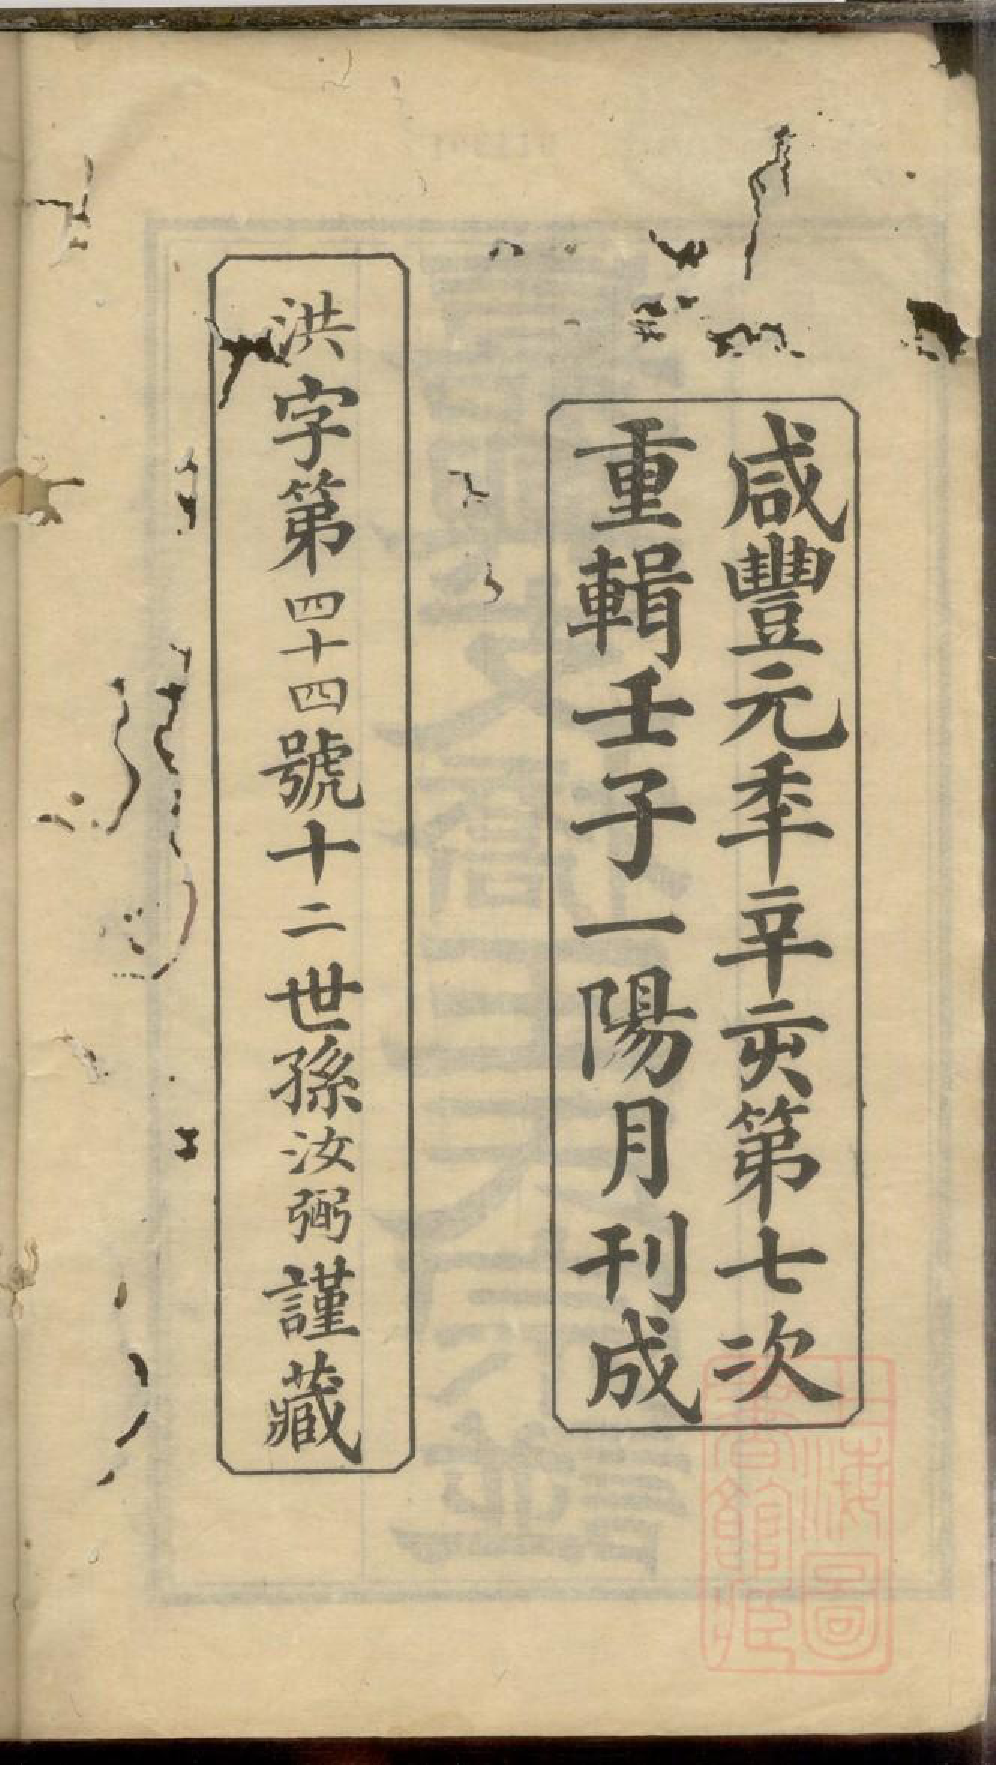 咸豐元秊辛亥第七次
重輯壬子一陽月刊成
洪字第四十四號十二世孫汝弼謹藏
上海圖
書館藏